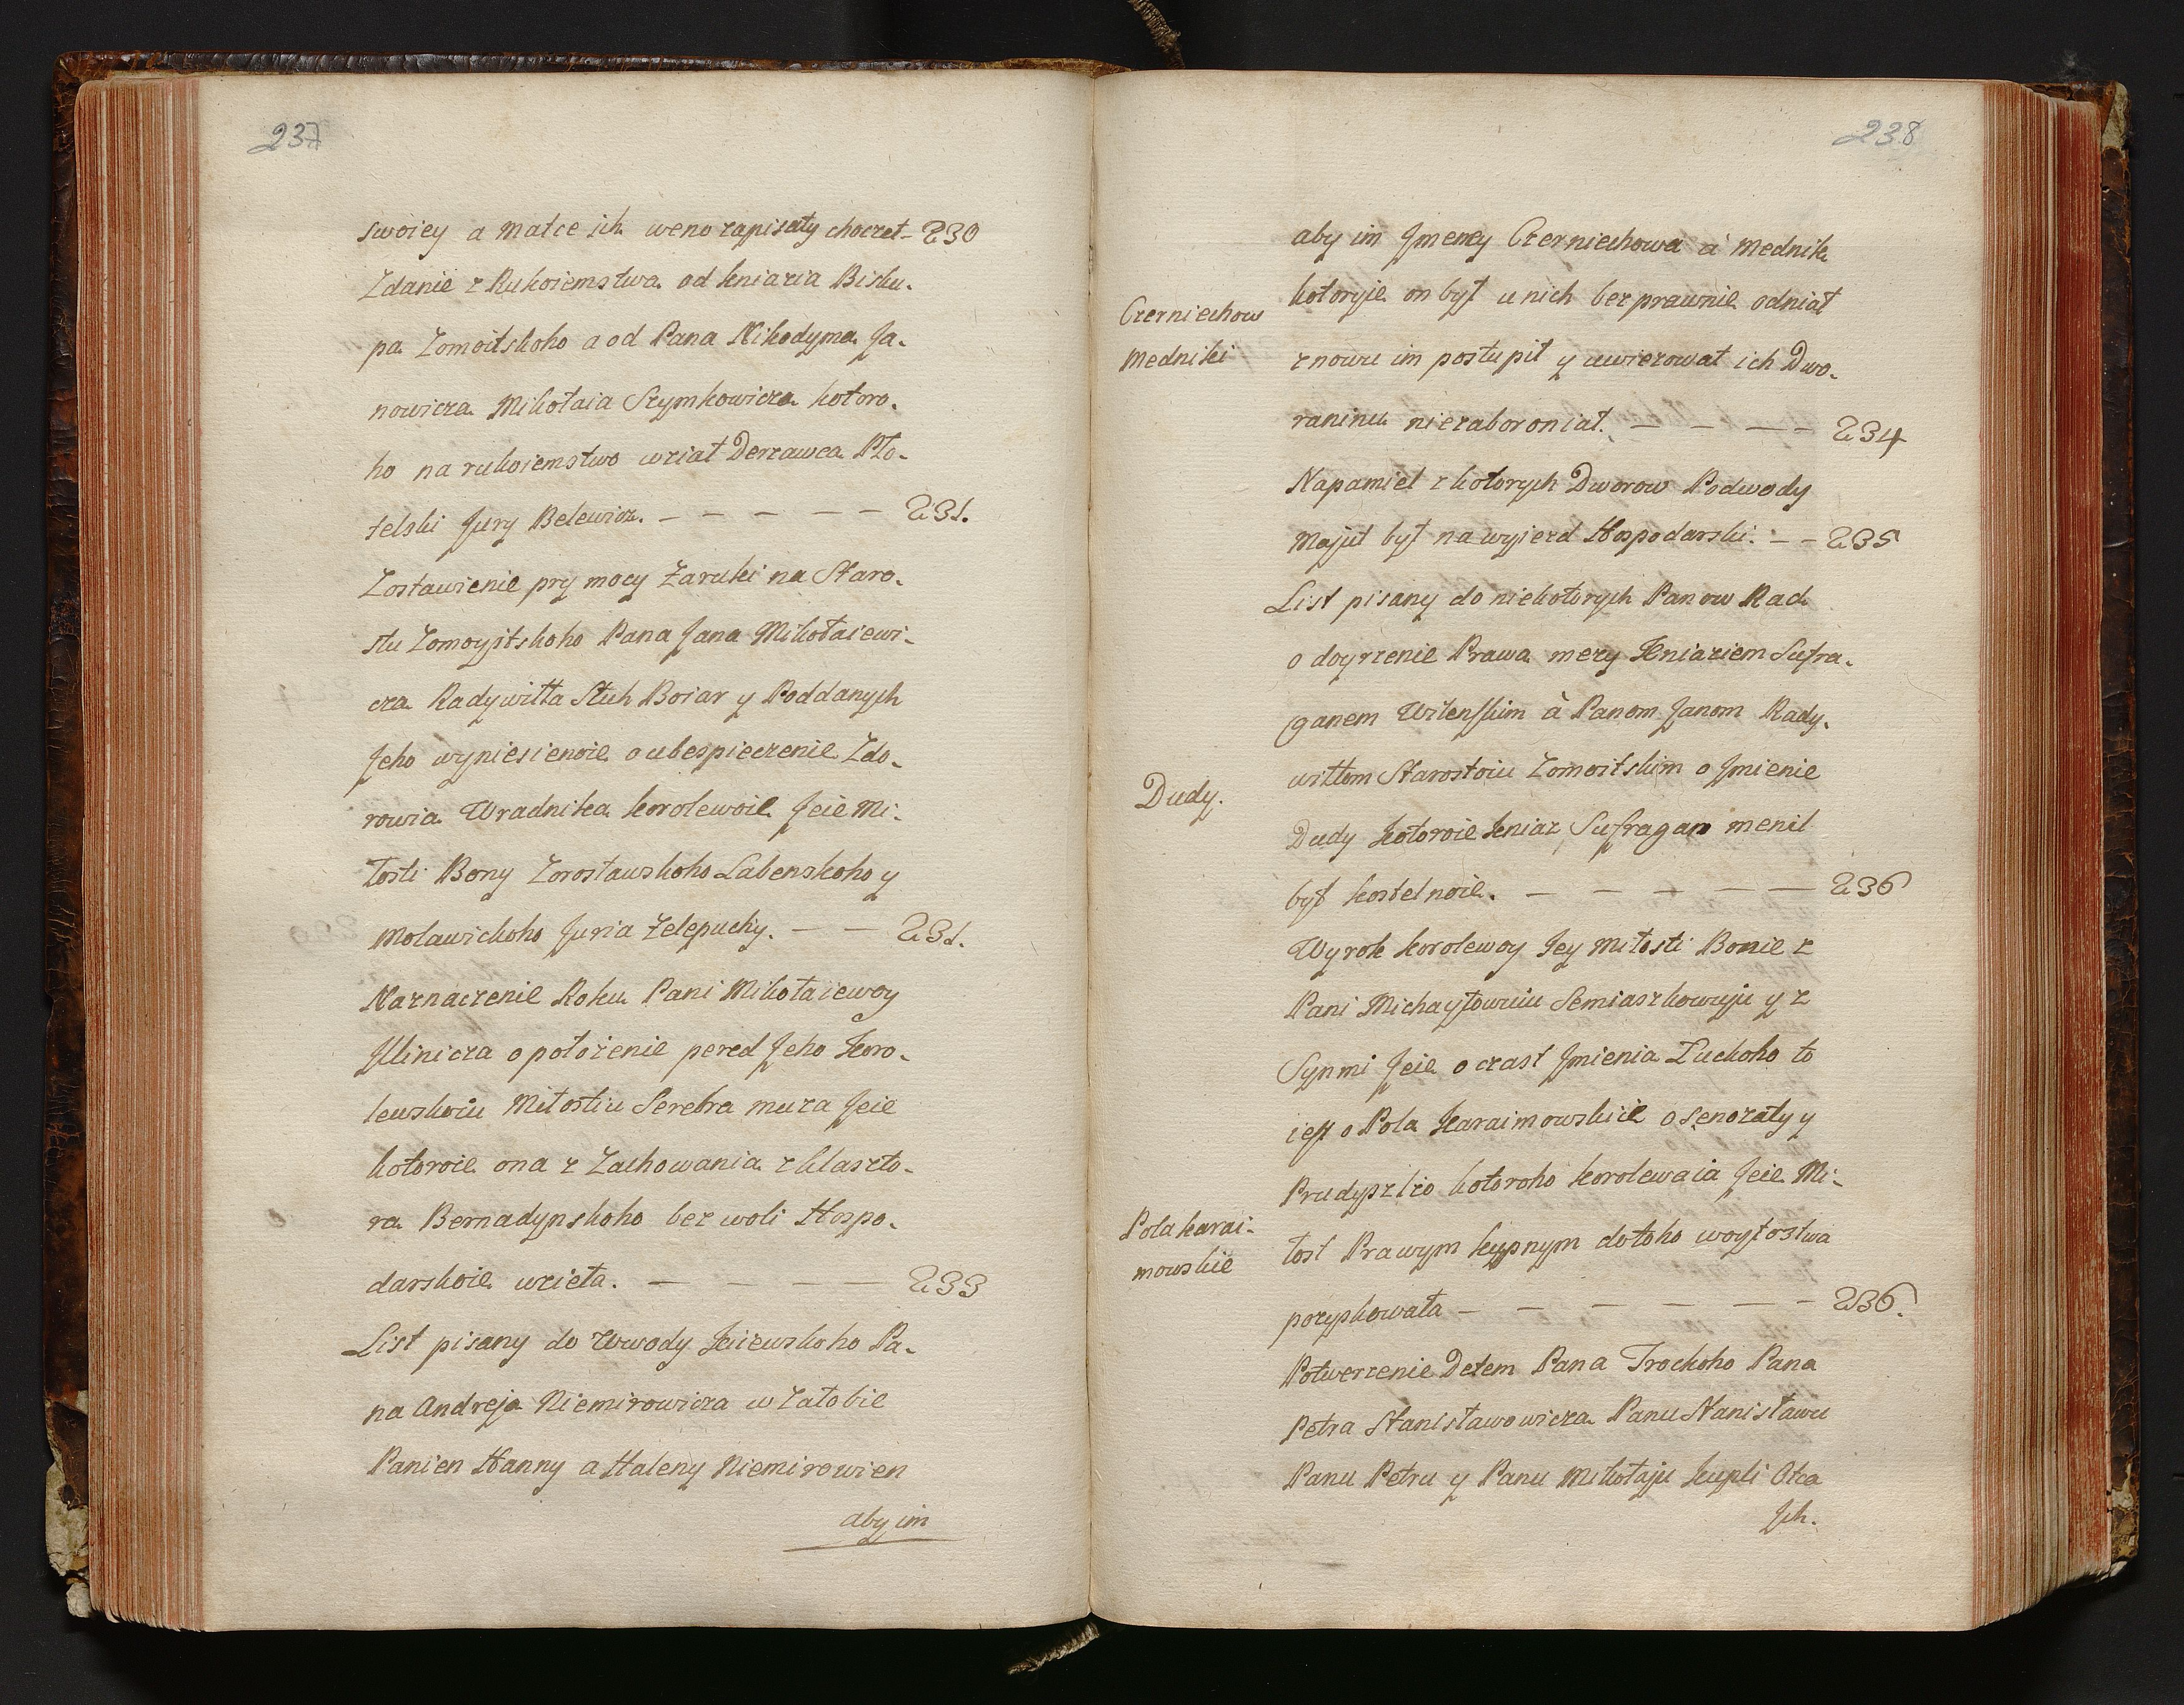 237
swoiey a matce ich weno zapisaty choczet - 230
Zdanie z Rukoiemstwa od kniazia Bisku-
pa Zomoitskoho a od Pana Nikodyma Ja-
nowicza Mikołaia Szymkowicza kotoro-
ho na rukoiemstwo wziat Derzawca Pło-
telski Jury Belewicz. — — — — — 231.
Zostawienie pry mocy Zaruki na Staro-
stu Zomoyitskoho Pana Jana Mikołaiewi-
cza Radywiłła Słuh Boiar y Poddanych
Jeho wyniesienoie o ubespieczenie Zdo-
rowia Wradnika korolewoie Jeie Mi-
łosti Bony Zorosławskoho Labenskoho y
Moławickoho Juria Zelepuchy. — — 231.
Naznaczenie Roku Pani Mikołaiewoy
Jllinicza o położenie pered Jeho Koro-
lewskoiu Miłostiu Serebra muza Jeie
kotoroie ona z Zachowania z klaszto-
ra Bernadynskoho bez woli Hospo-
darskoie wzieła. — — — — 233
List pisany do Wwody Kiiewskoho Pa-
na Andreja Niemirowicza w Załobie
Panien Hanny a Haleny Niemirowien
aby im
238
aby im Jmeney Czerniechowa à Mednik
kotoryie on był u nich bezprawnie odniał
Czerniechow
Medniki
znowu im postupił y uwiezowat ich Dwo-
raninu niezaboroniał. — — — — 234
Napamiet z kotorych Dworow Podwody
Majut byt na wyjezd Hospodarski. — — 235
List pisany do niekotorych Panow Rad
o doyrzenie Prawa mezy Kniaziem Sufra-
ganem Wilenskim à Panom Janom Rady-
wiłłom Starostoiu Zomoitskim o Jmienie
Dudy.
Dudy kotoroie kniaz Sufragan menil
byt kostelnoie. — — — — — 236
Wyrok korolewoy Jey Miłosti Bonie z
Pani Michayłowuiu Semiaszkowuju y z
Synmi Jeie o czast Jmienia Łuckoho to
iest o Pola Karaimowskiie o Senozaty y
Prudyszcżo kotoroho korolewaia Jeie Mi-
Pola karai-
mowskie
łost Prawym kupnym do toho woytostwa
pozyskowała — — — — — — 236.
Potwerzenie Detem Pana Trockoho Pana
Petra Stanisławowicza Panu Stanisławu
Panu Petru y Panu Mikołaju kupli Otca
Jch.